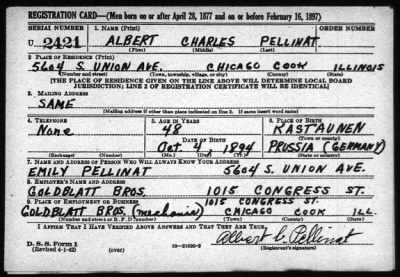 REGISTRATION CARD—(Men born on or after April 28, 1877 and on or before February 16, 1897)
SERIAL NUMBER 1. NAME (Print) ORDER NUMBER
U 2421 ALBERT CHARLES PELLINAT
(First) (Middle) (Last)
2. PLACE OF RESIDENCE (Print)
5604 S. UNION AVE. CHICAGO COOK ILLINOIS
(Number and street) (Town, township, village, or city) (County) (State)
[THE PLACE OF RESIDENCE GIVEN ON THE LINE ABOVE WILL DETERMINE LOCAL BOARD
JURISDICTION; LINE 2 OF REGISTRATION CERTIFICATE WILL BE IDENTICAL]
3. MAILING ADDRESS
SAME
[Mailing address if other than place indicated on line 2. If same insert word same]
4. TELEPHONE 5. AGE IN YEARS 6. PLACE OF BIRTH
None 48 KASTAUNEN
DATE OF BIRTH (Town or county)
Oct. 4, 1894 PRUSSIA (GERMANY)
(Exchange) (Number) (Mo.) (Day) (Yr.) (State or country)
7. NAME AND ADDRESS OF PERSON WHO WILL ALWAYS KNOW YOUR ADDRESS
EMILY PELLINAT 5604 S. UNION AVE.
8. EMPLOYER'S NAME AND ADDRESS
GOLDBLATT BROS. 1015 CONGRESS ST.
9. PLACE OF EMPLOYMENT OR BUSINESS 1015 CONGRESS ST.
GOLDBLATT BROS. (mechanic) CHICAGO COOK ILL.
(Number and street or R. F. D. number) (Town) (County) (State)
I AFFIRM THAT I HAVE VERIFIED ABOVE ANSWERS AND THAT THEY ARE TRUE.
D. S. S. Form 1
(Revised 4-1-42) (over) Albert C. Pellinat
(Registrant's signature)